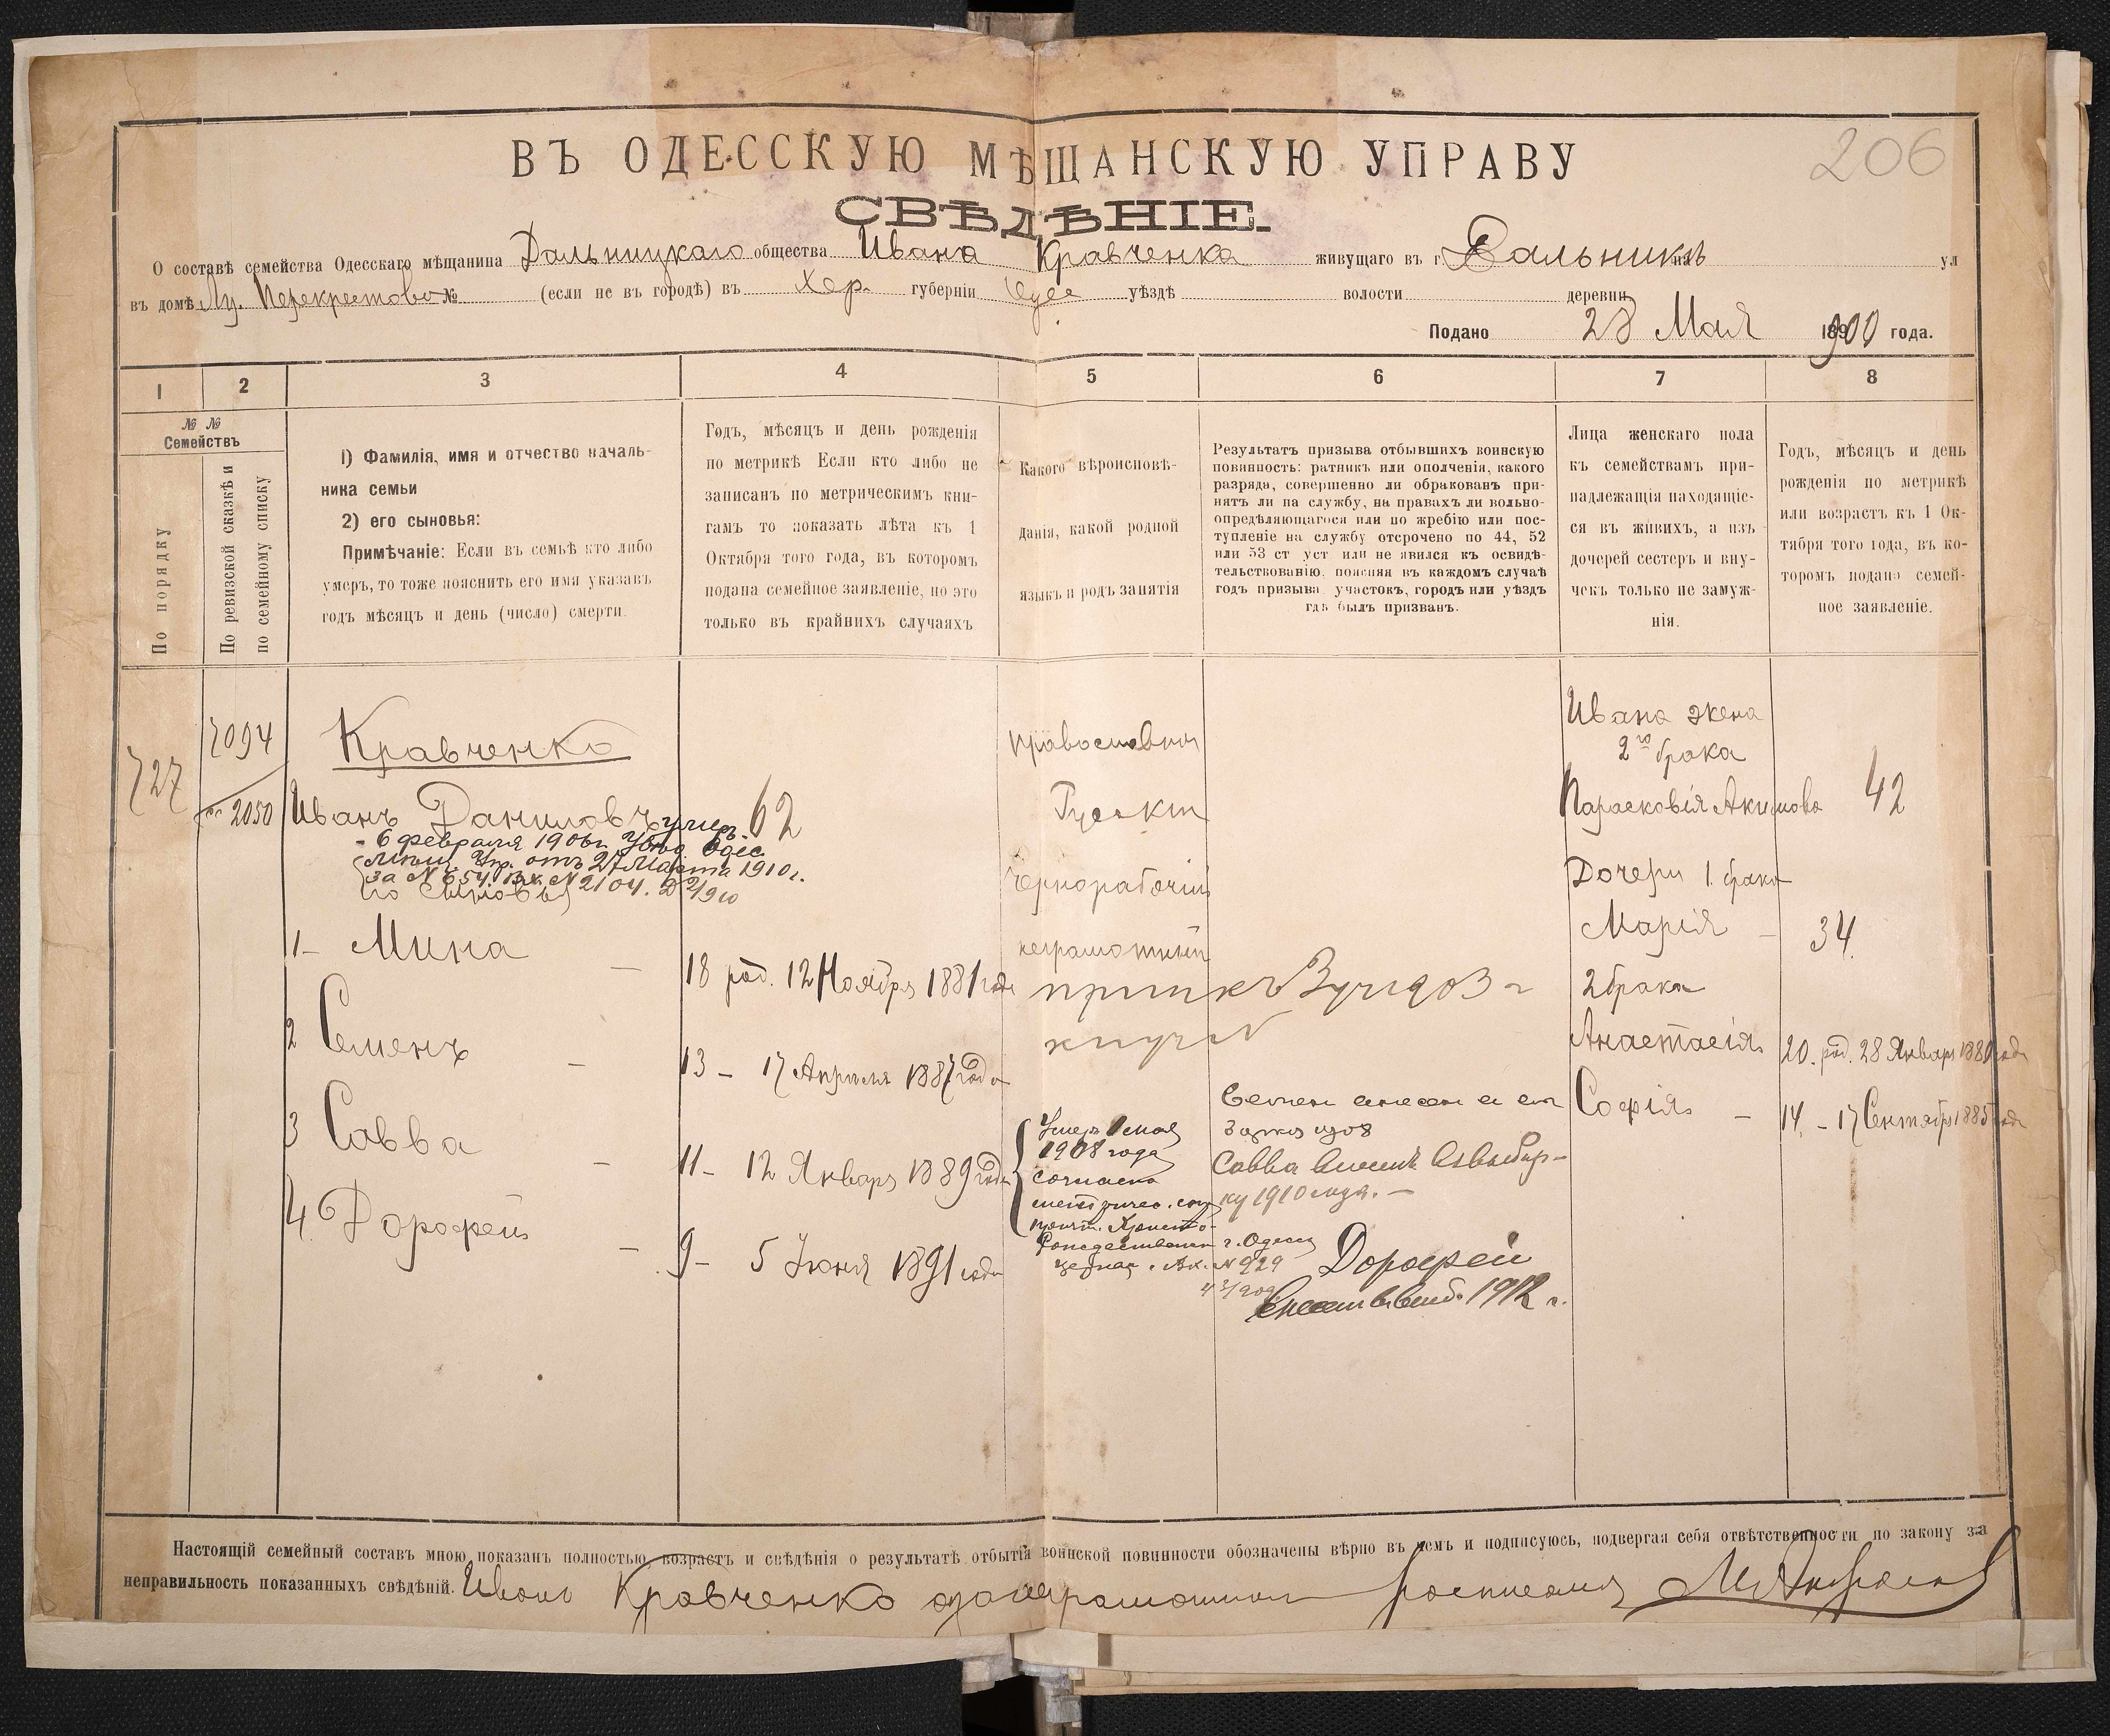 206
ВЪ ОДЕССКУЮ МѢЩАНСКУЮ УПРАВУ
СВѢДѢНІЕ.
О составѣ семейства Одесскаго мѣщанина Дальницкаго общества Ивана Кравченка живущаго въ г. Дальникъ на ул
въ домѣ Перекрестово № (если не въ городѣ) въ Хер. губерніи Одес уѣздѣ волости деревни
Подано 28 Мая 1900 года.
1 2 3 4 5 6 7 8
№ № Семействъ
По порядку
По ревизской сказкѣ и
по семейному списку
1) Фамилія, имя и отчество началь-
ника семьи
2) его сыновья:
Примѣчаніе: Если въ семьѣ кто либо
умеръ, то тоже пояснить его имя указавъ
годъ мѣсяцъ и день (число) смерти.
Годъ, мѣсяцъ и день рожденія
по метрикѣ Если кто либо не
записанъ по метрическимъ кни-
гамъ то показать лѣта къ 1
Октября того года, въ которомъ
подана семейное заявленіе, но это
только въ крайнихъ случаяхъ
Какого вѣроисповѣ-
данія, какой родной
языкъ и родъ занятія
Результатъ призыва отбывшихъ воинскую
повинность: ратникъ или ополченія, какого
разряда, совершенно ли обракованъ при-
нятъ ли на службу, на правахъ ли вольно-
опредѣляющагося или по жребію или пос-
тупленіе на службу отсрочено по 44, 52
или 53 ст уст или не явился къ освидѣ-
тельствованію, поясняя въ каждомъ случаѣ
годъ призыва участокъ, городъ или уѣздъ
гдѣ былъ призванъ.
Лица женскаго пола
къ семействамъ при-
надлежащія находящіе-
ся въ живихъ, а изъ
дочерей сестеръ и вну-
чекъ только не замуж-
нія.
Годъ, мѣсяцъ и день
рожденія по метрикѣ
или возрастъ къ 1 Ок-
тября того года, въ ко-
торомъ подано семей-
ное заявленіе.
727
7094
2050
Кравченко
Иванъ Даниловъ умеръ 62
6 февраля 190 Одес
Мѣщ. Упр. отъ 27 Марта 1910 г.
за № 654 Вх. № 2104.
Его Сыновья
1 - Мина - 18 род. 12 Ноября 1881 года
2 Семенъ - 13 - 17 Апреля 1887 года
3 Савва - 11 - 12 Января 1889 года
4 Дорофей - 9 - 5 Іюня 1891 года
православный
Русскій
Чернорабочій
неграмотный
1903 г
Умеръ 1 мая
1908 года
согласно
Рождественск г. Одессы
церкви № 929
Савва
1910 года. -
Дорофей
внесенъ 1912 г.
Ивана жена
2го брака
Парасковія Акимова 42
Дочери 1. брака
Марія - 34.
2 брака
Анастасія 20. род. 28 Января 1880 года
Софія - 14. - 17 Сентября 1885 года
Настоящій семейный составъ мною показанъ полностью, возрастъ и свѣдѣнія о результатѣ отбытія воинской повинности обозначены вѣрно въ чемъ и подписуюсь, подвергая себя отвѣтственности по закону за
неправильность показанныхъ свѣдѣній. Иванъ Кравченко